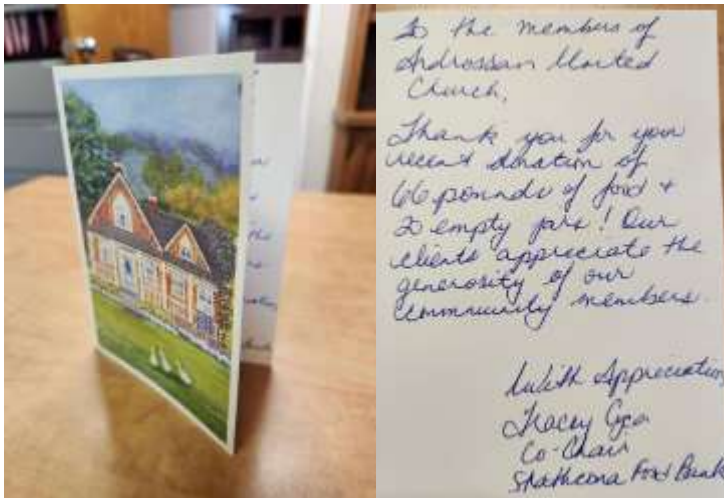 To the members of
Ardrossan United
Church,
Thank you for your
recent donation of
66 pounds of food +
20 empty jars! Our
clients appreciate the
generosity of our
community members.
With Appreciation
Tracey
Co-Chair
Strathcona Food Bank
the